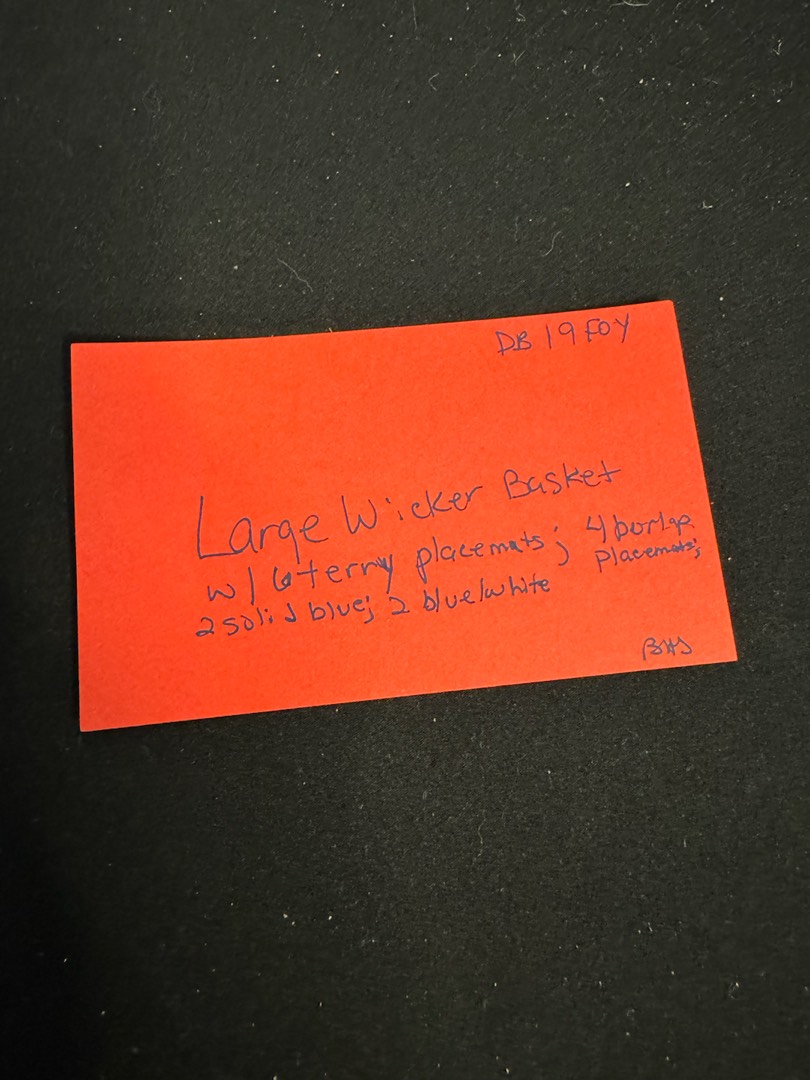 DB 19 FOY
Large Wicker Basket
w/ 6 terry placemats; 4 burlap
placemats;
2 solid blue; 2 blue/white